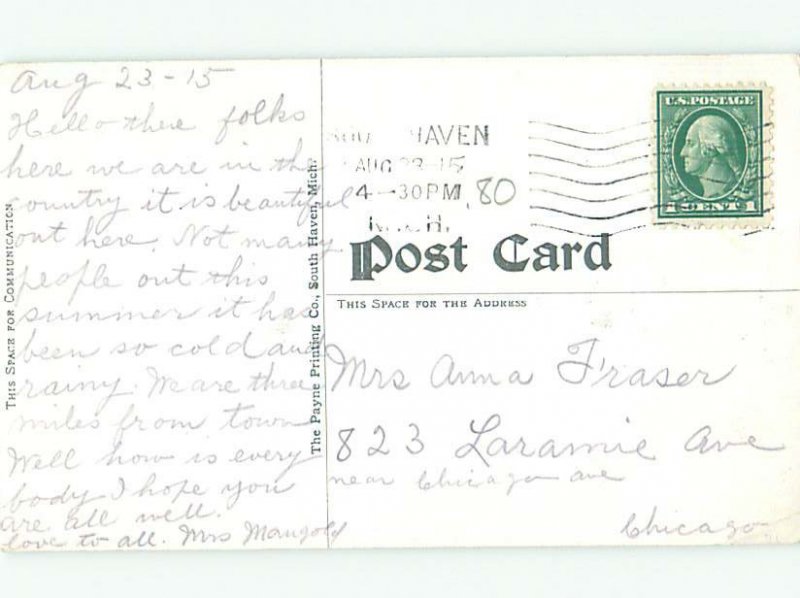 Aug 23-15
Hello there folks
here we are in the
country it is beautiful
out here. Not many
people out this
summer it has
been so cold and
rainy. We are three
miles from town
Well how is every
body I hope you
are all well.
love to all. Mrs Mangold
THIS SPACE FOR COMMUNICATION
The Payne Printing Co., South Haven, Mich.
HAVEN
AUG 23 15
4-30PM
80
U.S. POSTAGE
1 CENT 1
Post Card
THIS SPACE FOR THE ADDRESS
Mrs Anna Fraser
823 Laramie Ave
near Chicago ave
Chicago